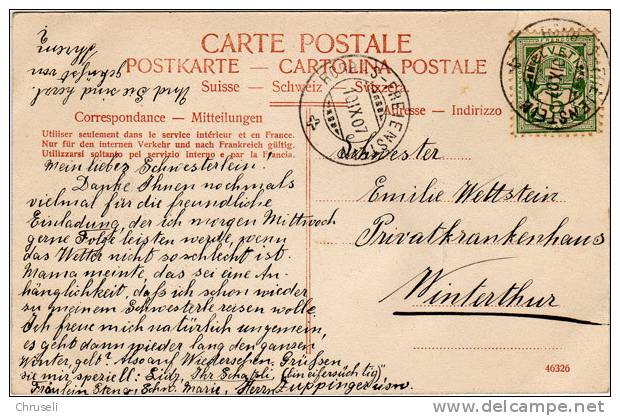 CARTE POSTALE
POSTKARTE — CARTOLINA POSTALE
Suisse — Schweiz — Svizzera
Correspondance — Mitteilungen
Adresse — Indirizzo
Utiliser seulement dans le service intérieur et en France.
Nur für den internen Verkehr und nach Frankreich gültig.
Utilizzarsi soltanto pel servizio interno e par la Francia.
Mein liebes Schwesterlein!
Danke Ihnen nochmals
vielmal für die freundliche
Einladung, der ich morgen Mittwoch
gerne Folge leisten werde, wenn
das Wetter nicht so schlecht ist.
Mama meinte, das sei eine An-
hänglichkeit, daß ich schon wieder
zu meinem Schwesterle reisen wolle.
Ich freue mich natürlich ungemein,
es geht dann wieder lang den ganzen
Winter, gelt? Also auf Wiedersehen. Grüßen
sie mir speziell: Ihr Schatzli, (bin eifersüchtig)
Fräulein Schw. Marie, Herrn Zuppinger
Und Sie sind herzl.
von
Schwester
Emilie Wettstein
Privatkrankenhaus
Winterthur
HELVETIA
5
46326
Chruseli
www.delcampe.net